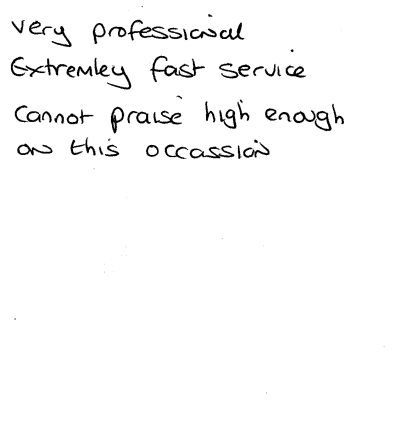 very professional
Extremley fast service
Cannot praise high enough
on this occassion